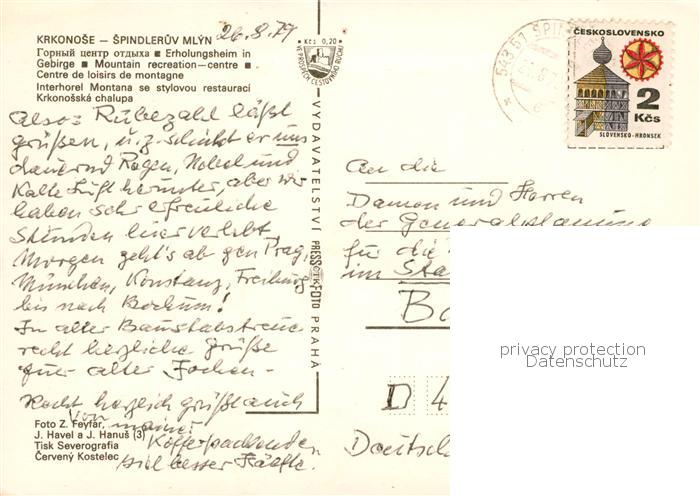 KRKONOŠE – ŠPINDLERŮV MLÝN
26.8.79
Горный центр отдыха ■ Erholungsheim in
Gebirge ■ Mountain recreation-centre ■
Centre de loisirs de montagne
Interhorel Montana se stylovou restaurací
Krkonošská chalupa
Also: Rübezahl läßt
grüßen, u.z. schickt er uns
dauernd Regen, Nebel und
kalte Luft herunter, aber wir
haben sehr erfreuliche
Stunden hier verlebt.
Morgen geht's ab gen Prag,
München, Konstanz, Freiburg
bis nach Bochum!
In alter Baustabstreue
recht herzliche Grüße
Ihr alter Jochen -
Recht herzlich grüßt auch
Von meiner
Kofferpackenden
viel besser Hälfte.
Foto Z. Feyfar,
J. Havel a J. Hanuš (3)
Tisk Severografia
Červený Kostelec
Kčs 0,20
VE PROSPĚCH CESTOVNÍHO RUCHU
VYDAVATELSTVÍ PRESSFOTO PRAHA
ČTK
543 51 ŠPIN
ČESKOSLOVENSKO
2
Kčs
SLOVENSKO-HRONSEK
An die
Damen und Herren
der Generalplanung
für die
im Sta
Bo
D 4
Deutsch
privacy protection
Datenschutz